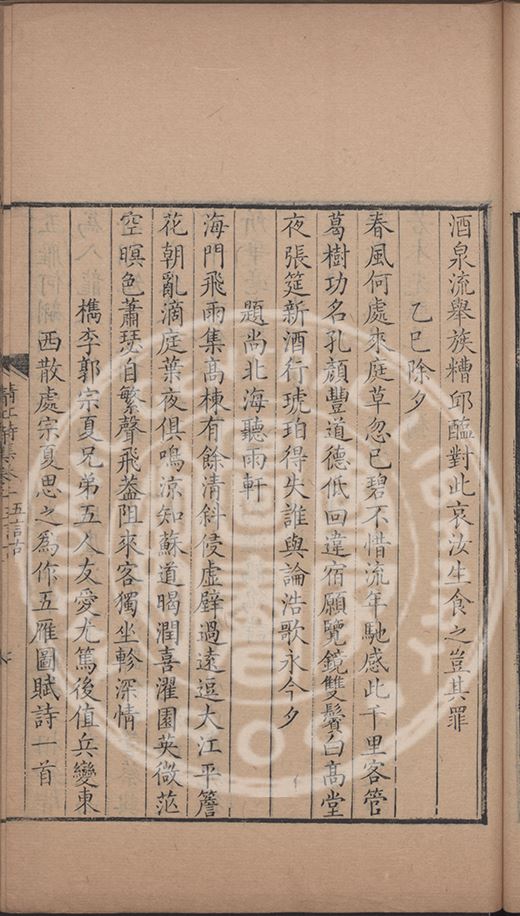 酒泉流舉族糟邱醢對此哀汝生食之豈其罪
乙巳除夕
春風何處來庭草忽已碧不惜流年馳感此千里客管
葛樹功名孔顏豐道德低回違宿願覽鏡雙鬢白高堂
夜張筵新酒行琥珀得失誰與論浩歌永今夕
題尚北海聽雨軒
海門飛雨集高棟有餘清斜侵虛壁過遠逗大江平簷
花朝亂滴庭葉夜俱鳴涼知蘇道暍潤喜濯園英微茫
空暝色蕭瑟自繁聲飛葢阻來客獨坐軫深情
檇李郭宗夏兄弟五人友愛尤篤後值兵變東
西散處宗夏思之為作五雁圖賦詩一首
五言古